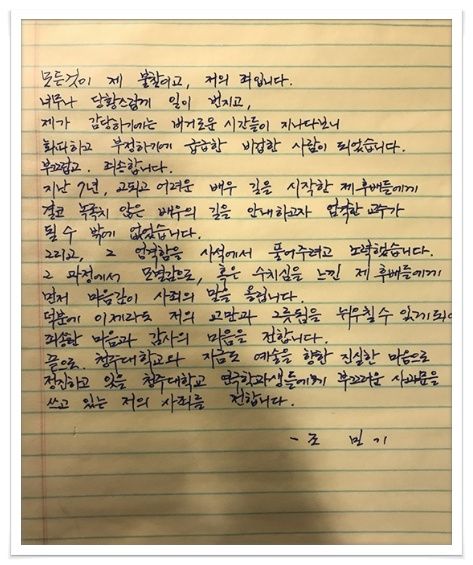 모든것이 제 불찰이고, 저의 죄입니다.
너무나 당황스럽게 일이 번지고,
제가 감당하기에는 버거운 시간들이 지나다보니
회피하고 부정하기에 급급한 비겁한 사람이 되었습니다.
부끄럽고, 죄송합니다.
지난 7년, 고되고 어려운 배우 길을 시작한 제 후배들에게
결코 녹록치 않은 배우의 길을 안내하고자 엄격한 교수가
될 수 밖에 없었습니다.
그리고, 그 엄격함을 사석에서 풀어주려고 노력했습니다.
그 과정에서 모멸감으로, 혹은 수치심을 느낀 제 후배들에게
먼저 마음깊이 사죄의 말을 올립니다.
덕분에 이제라도 저의 교만과 그릇됨을 뉘우칠 수 있게 되어
죄송한 마음과 감사의 마음을 전합니다.
끝으로 청주대학교와 지금도 예술을 향한 진실한 마음으로
정진하고 있을 청주대학교 연극학과생들에게 부끄러운 사과문을
쓰고 있는 저의 사죄를 전합니다.
- 조 민 기